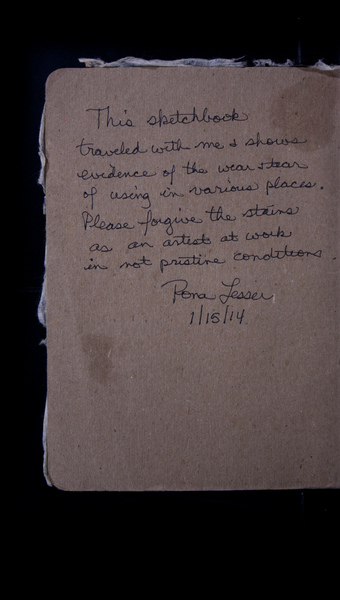 This sketchbook
traveled with me & shows
evidence of the wear & tear
of using in various places.
Please forgive the stains
as an artist at work
in not pristine conditions.
Rona Lesser
1/15/14